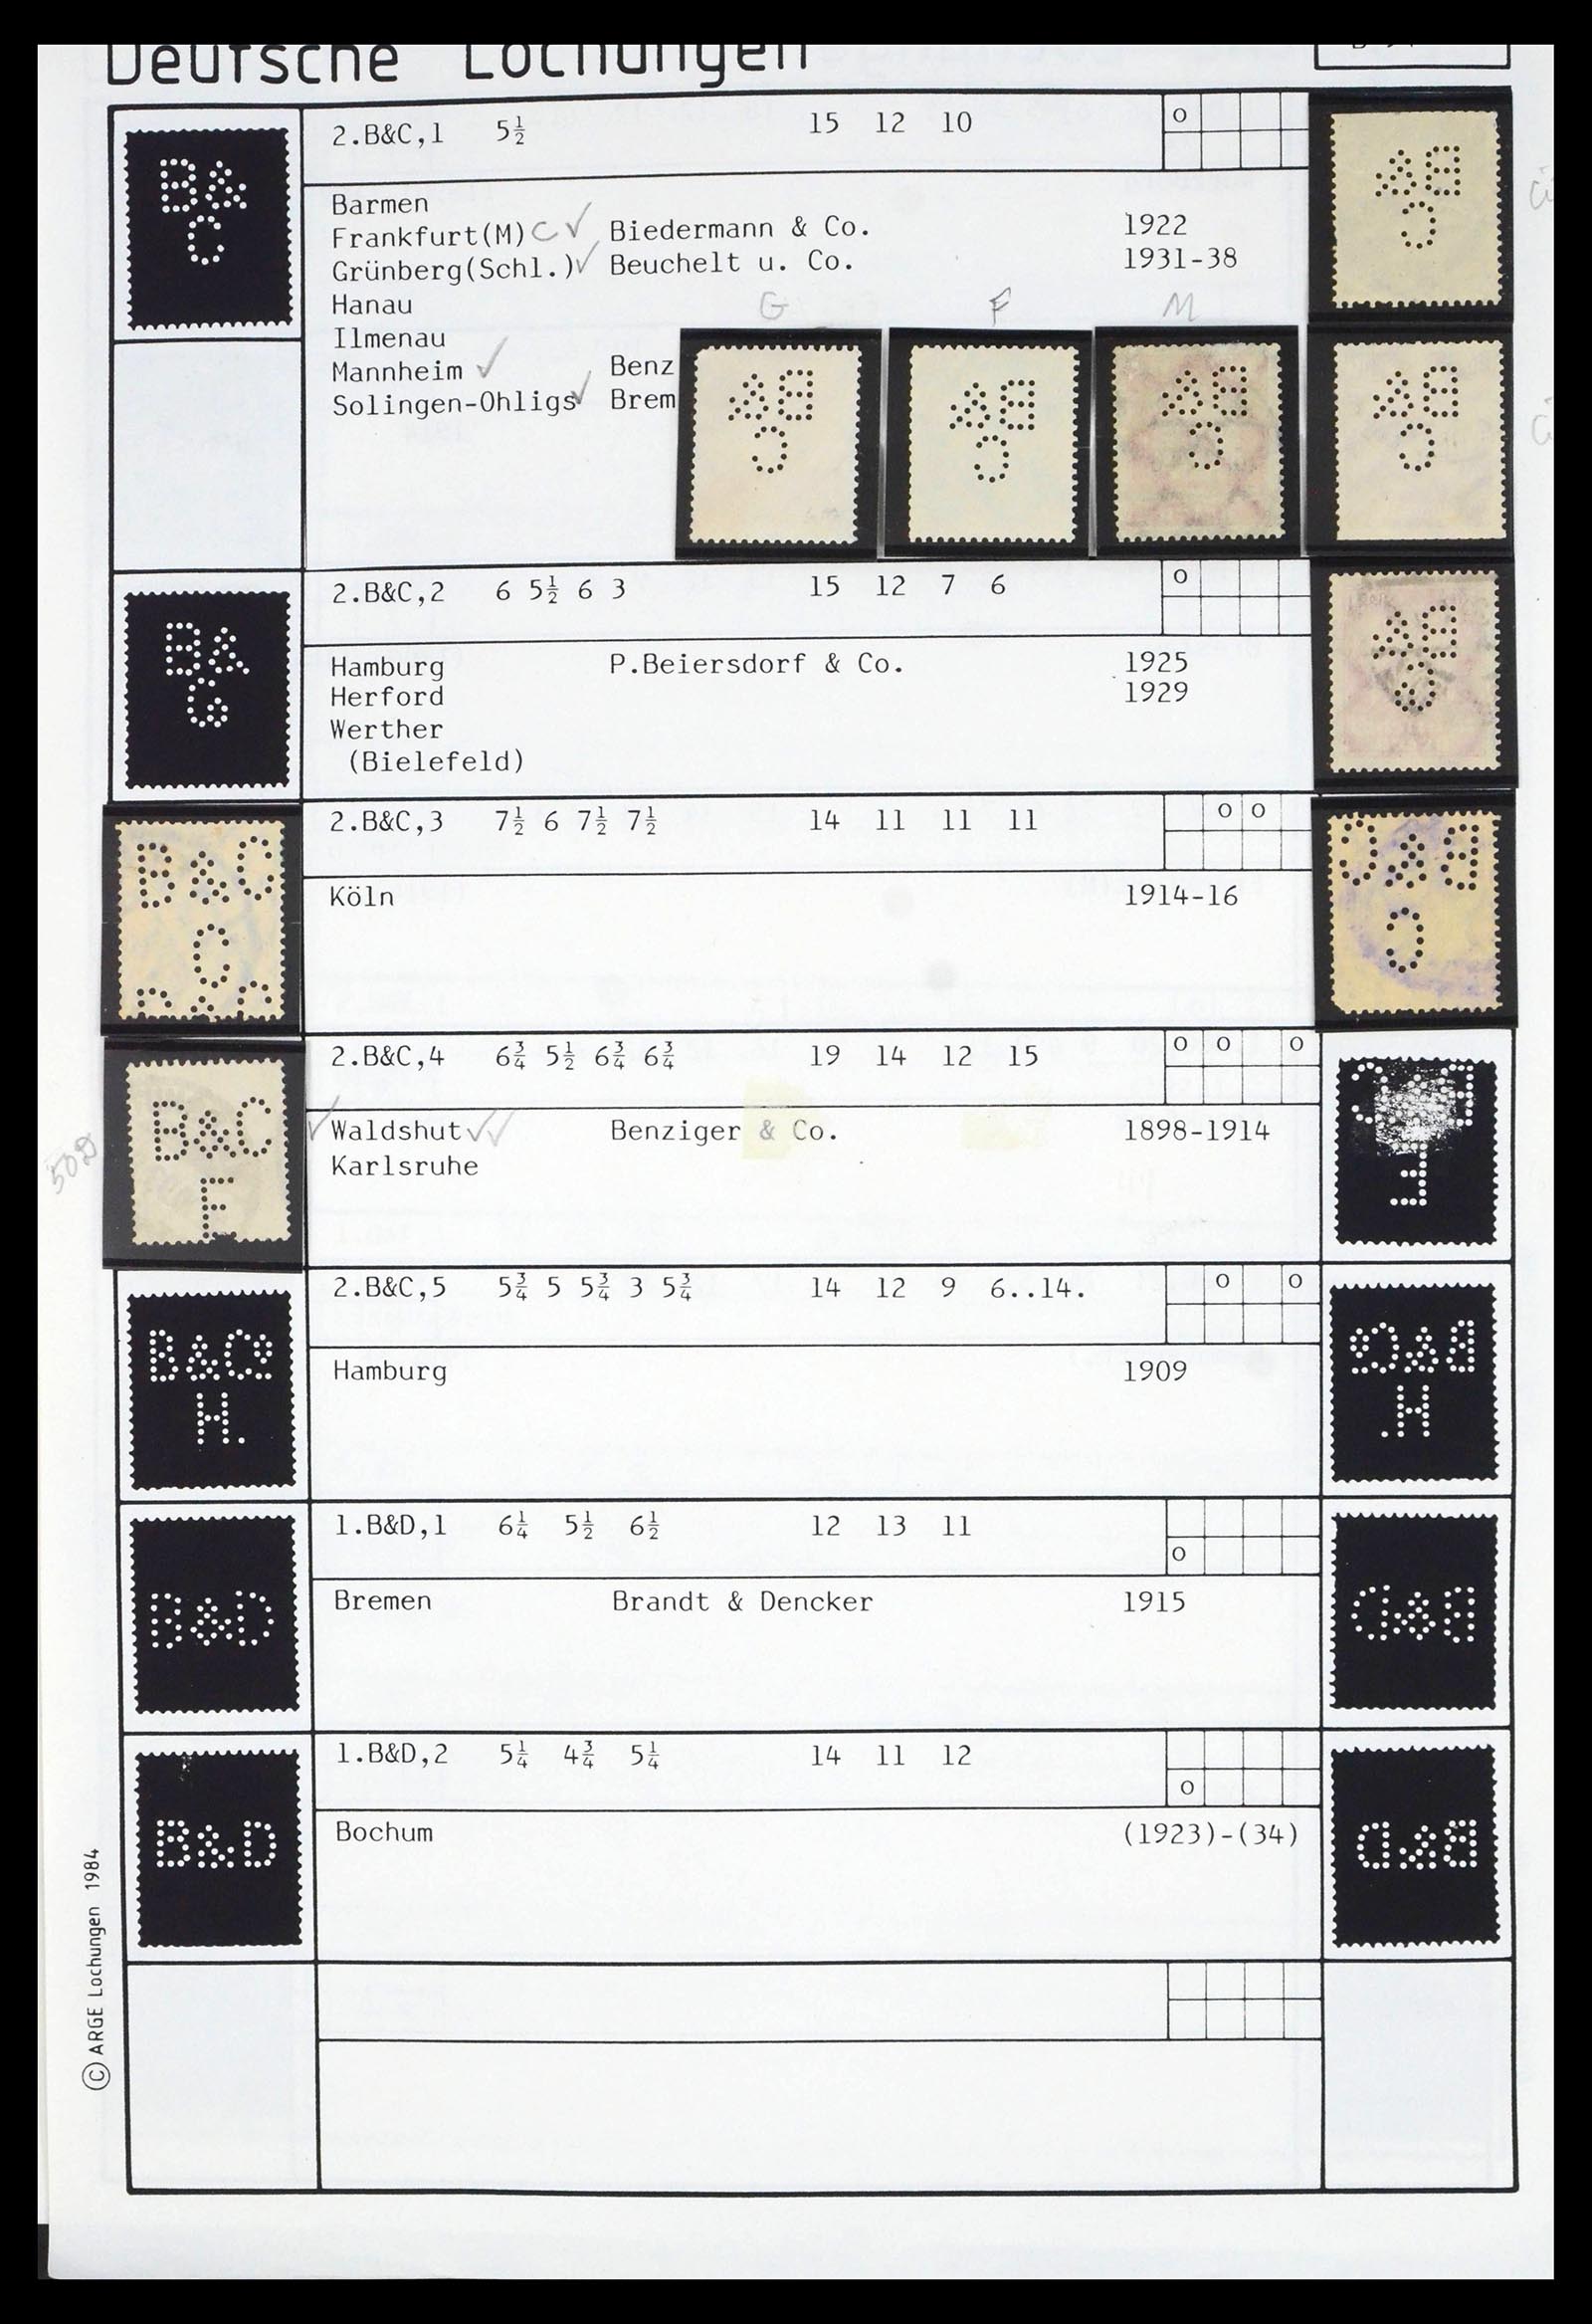 Deutsche Lochungen
B&
C
2.B&C,1 5½ 15 12 10 o
B&
C
Barmen
Frankfurt(M) C ✓ Biedermann & Co. 1922
Grünberg(Schl.) ✓ Beuchelt u. Co. 1931-38
Hanau
G F M
Ilmenau
Mannheim ✓ Benz
Solingen-Ohligs ✓ Brem
B&
C
B&
C
B&
C
B&
C
B&
Co
2.B&C,2 6 5½ 6 3 15 12 7 6 o
B&
Co
Hamburg P.Beiersdorf & Co. 1925
Herford 1929
Werther
(Bielefeld)
B&C
C
2.B&C,3 7½ 6 7½ 7½ 14 11 11 11 o o
B&C
C
Köln 1914-16
B&C
F
2.B&C,4 6¾ 5½ 6¾ 6¾ 19 14 12 15 o o o
B&C
F
✓ Waldshut ✓✓ Benziger & Co. 1898-1914
Karlsruhe
B&Co
H.
2.B&C,5 5¾ 5 5¾ 3 5¾ 14 12 9 6..14. o o
B&Co
H.
Hamburg 1909
B&D
1.B&D,1 6¼ 5½ 6½ 12 13 11 o
B&D
Bremen Brandt & Dencker 1915
B&D
1.B&D,2 5¼ 4¾ 5¼ 14 11 12 o
B&D
Bochum (1923)-(34)
© ARGE Lochungen 1984